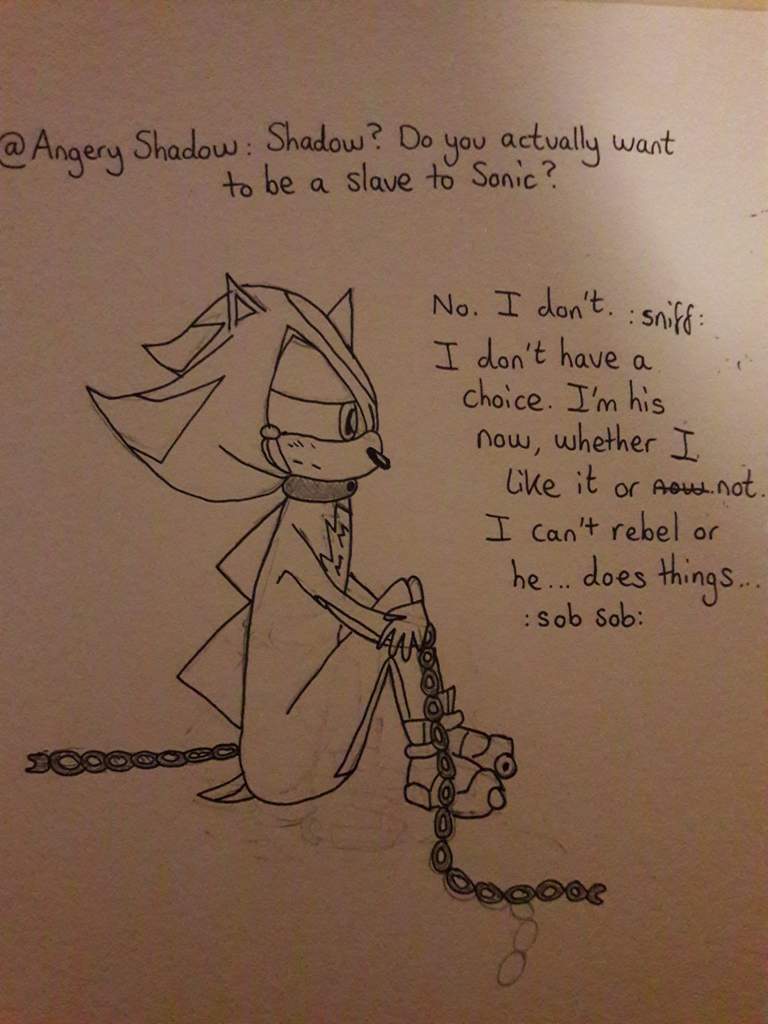 @Angery Shadow: Shadow? Do you actually want
to be a slave to Sonic?
No. I don't. :sniff:
I don't have a
choice. I'm his
now, whether I
like it or now not.
I can't rebel or
he... does things...
:sob sob: